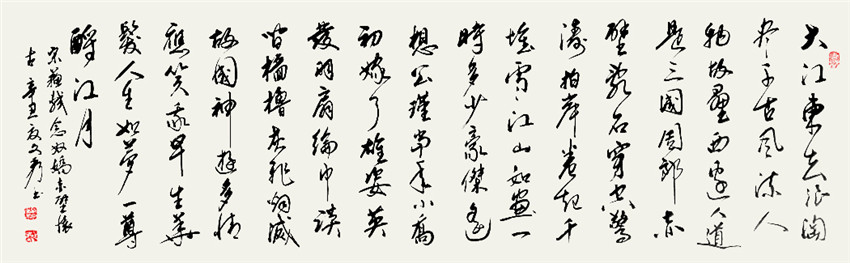 大江東去浪淘
盡千古風流人
物故壘西邊人道
是三國周郎赤
壁亂石穿空驚
濤拍岸卷起千
堆雪江山如畫一
時多少豪傑遙
想公瑾當年小喬
初嫁了雄姿英
發羽扇綸巾談
檣櫓灰飛烟滅
故國神遊多情
應笑我早生華
髮人生如夢一尊
酹江月
宋蘇軾念奴嬌赤壁懷
古辛丑夏文書